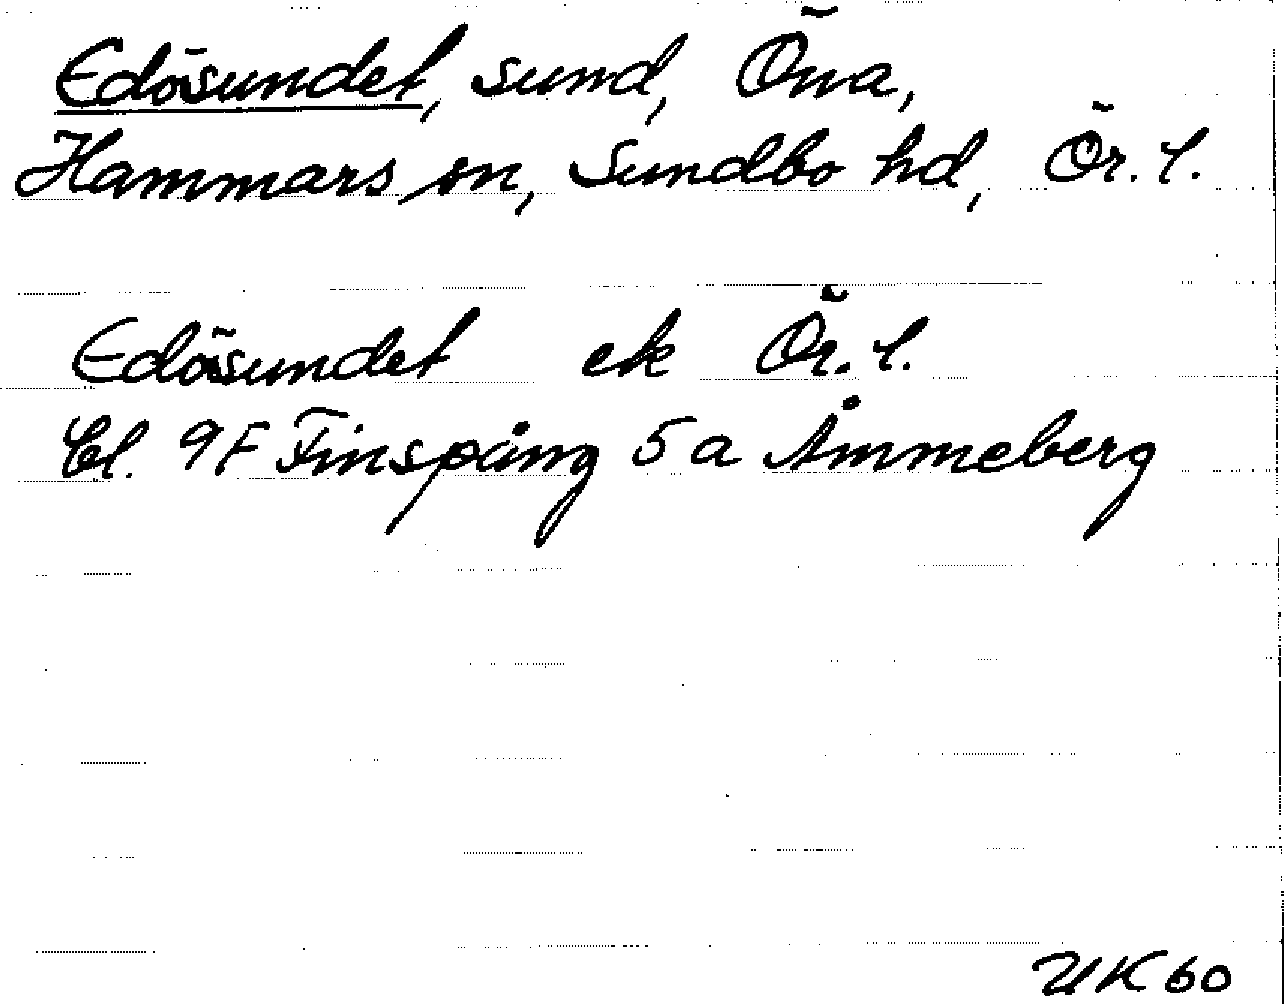 Edösundet, sund, Öna,
Hammars sn, Sundbo hd, Ör. l.
Edösundet ek Ör. l.
Bl. 9F Finspång 5 a Åmmeberg
UK 60